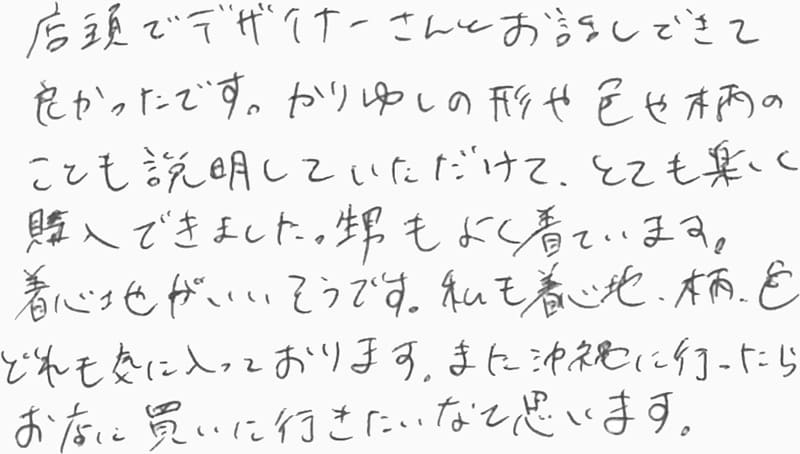 店頭でデザイナーさんとお話しできて
良かったです。かりゆしの形や色や柄の
ことも説明していただけて、とても楽しく
購入できました。甥もよく着ています。
着心地がいいそうです。私も着心地、柄、色
どれも気に入っております。また沖縄に行ったら
お店に買いに行きたいなと思います。